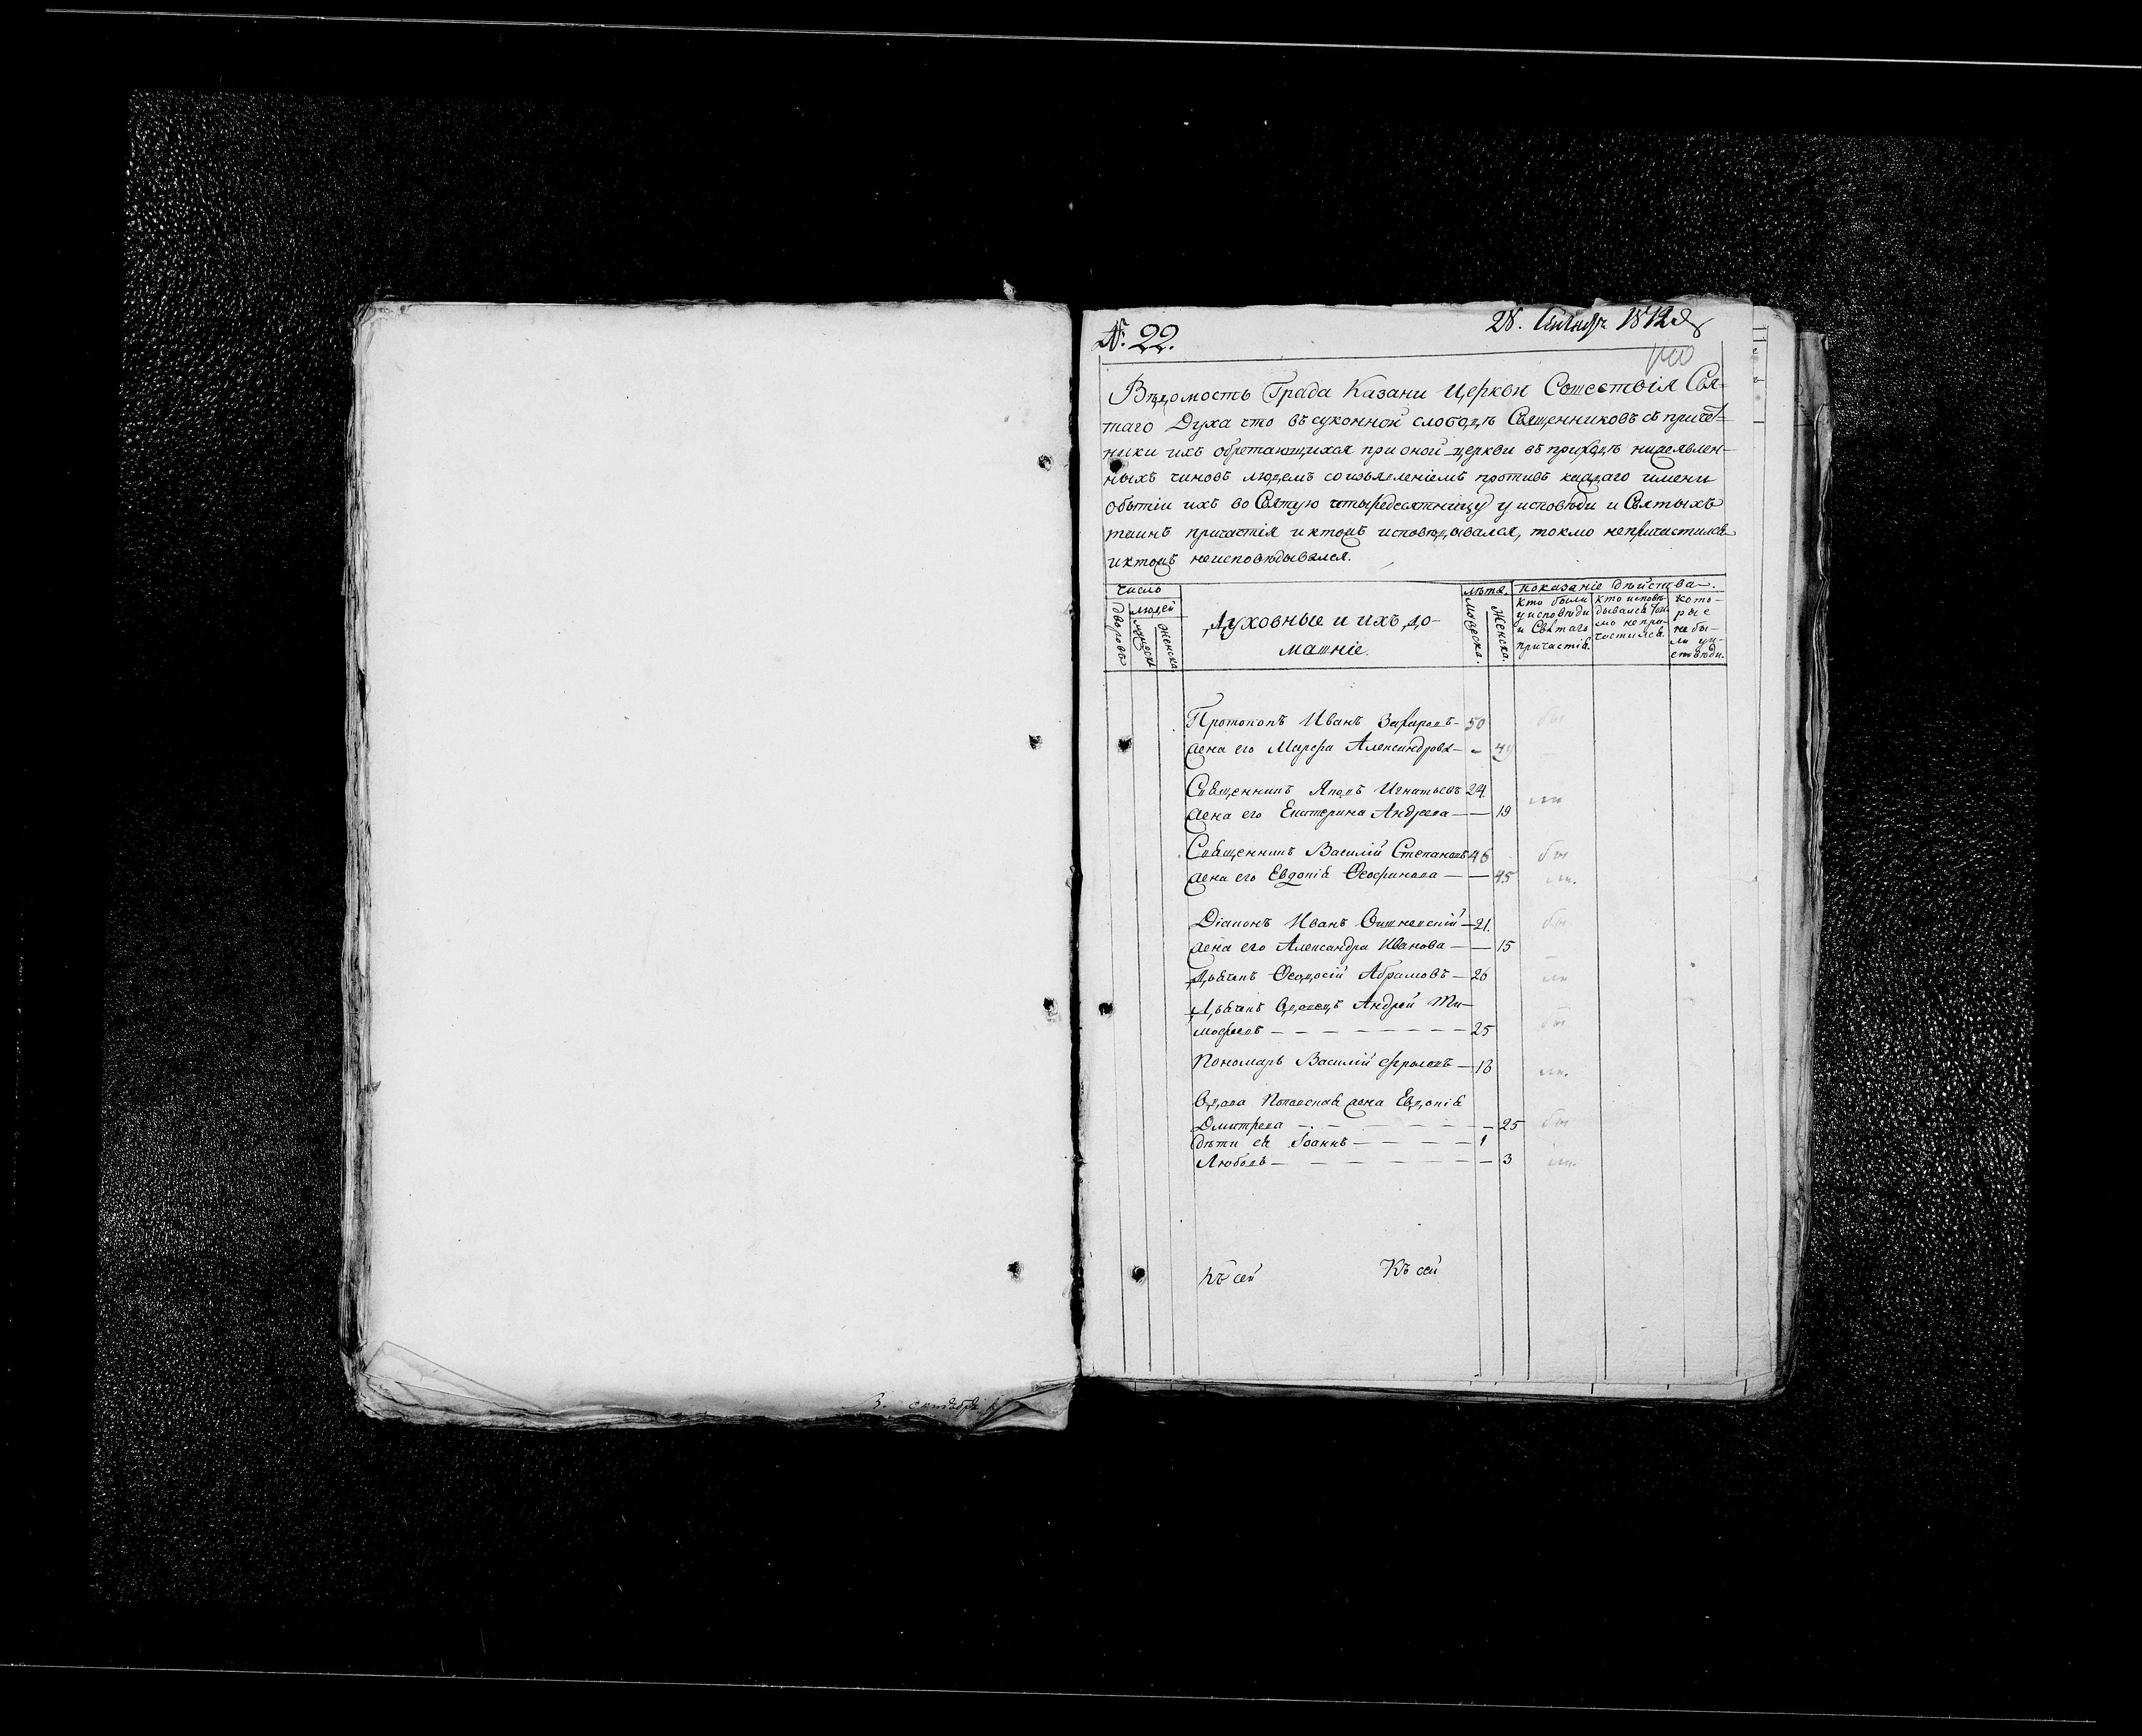 №. 22.
28. 1812
140
Вѣдомость Града Казани Церкви Сошествія Свя-
таго Духа что въ суконной слободѣ Священниковъ съ причет-
ники ихъ обретающихся при оной церкви въ приходѣ нижеявлен-
ныхъ чиновъ людемъ со изъявленіемъ противъ каждаго имени
обытіи ихъ во Святую четыредесятницу у исповѣди и Святыхъ
таинъ причастія и ктожъ исповѣдывался, токмо непричастился
и ктожъ неисповѣдывался.
число
дворовъ
людей
мужеска
женска
Духовные и ихъ до-
машніе.
лѣта.
мужеска.
женска.
показаніе дѣйства.
кто были
у исповѣди
и Святаго
причастія.
кто исповѣ-
дывался ток-
мо не при-
частился.
кото-
рые
не бы-
ли у и-
сповѣди.
Протопопъ Иванъ Захаровъ — 50 бы
жена его Марфа Александрова — 49
Священникъ Яковъ Игнатьевъ 24 ли
жена его Екатерина Андреева — — 19
Священникъ Василій Степановъ 46 бы
жена его Евдокія Феофилова — — 45 ли.
Діаконъ Иванъ Вишневскій — 21. бы
жена его Александра Иванова — — 15
Дьячекъ Феодосій Абрамовъ — 26 ли
Дьячекъ вдовецъ Андрей Ти-
мофеевъ — — — — — — — — 25 бы
Пономарь Василій Фроловъ — 18 ли.
Вдова Поповская жена Евдокія
Дмитрева — — — — — — — 25 бы
дѣти ея Іоаннъ — — — — 1
Любовь — — — — — — — 3 ли.
Къ сей Къ сей
октября